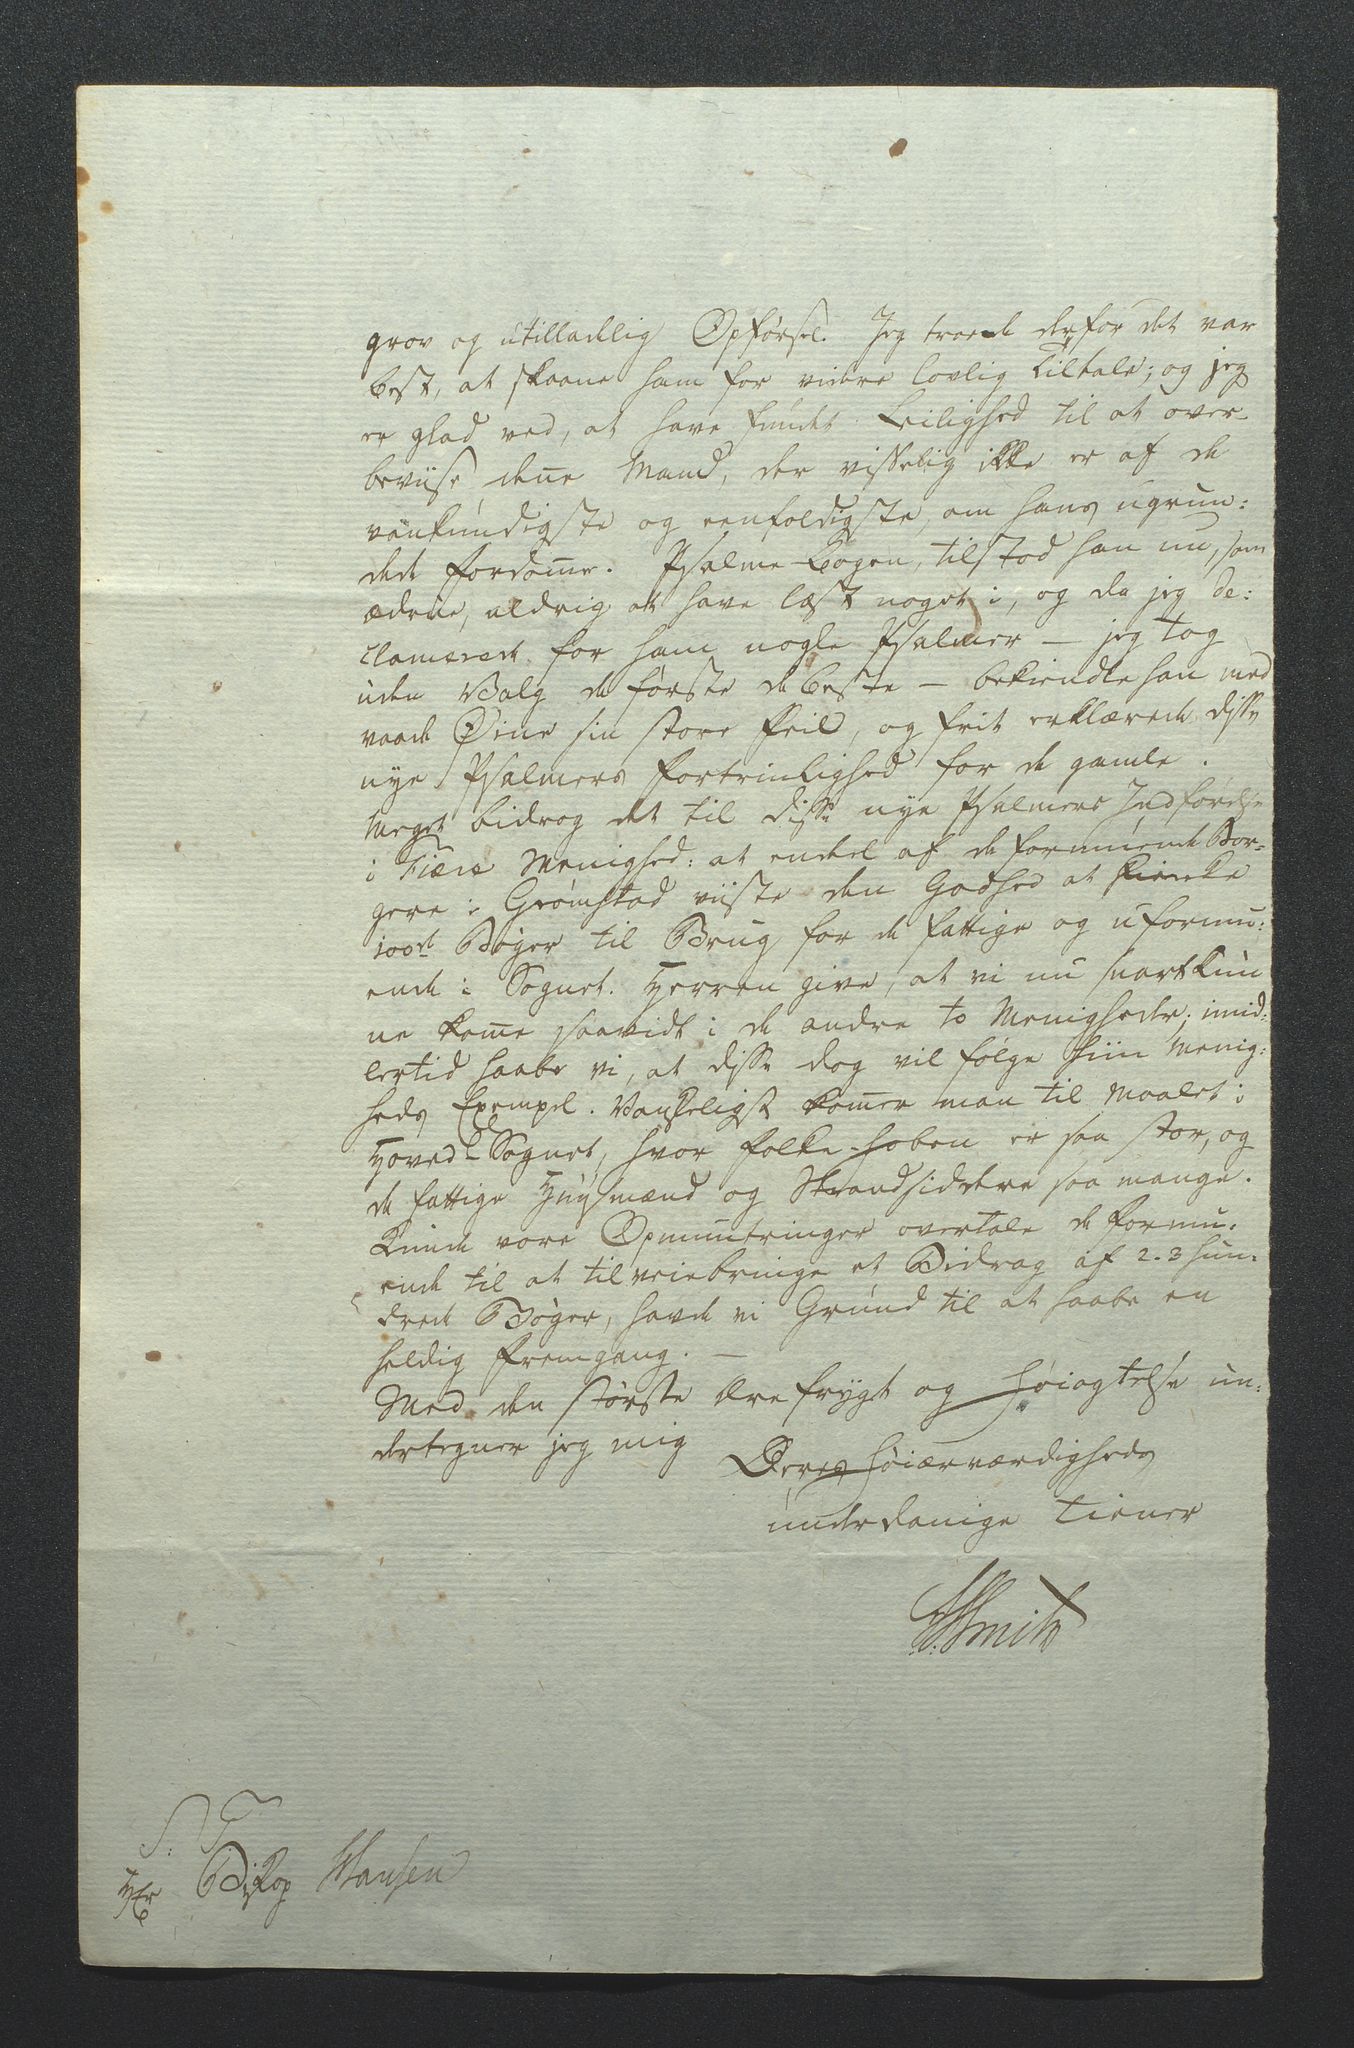 grov og utilladlig Opførsel. Jeg troede derfor det var
best, at skaane ham for videre lovlig Tiltale; og jeg
er glad ved, at have fundet Leilighed til at over-
beviise den̅e Mand, der visselig ikke er af de
vankundigste og eenfoldigste, om hans ugrun:
dede Fordom̅e. Psalme-Bogen, tilstod han nu, som
ædrue, aldrig at have læst noget i, og da jeg de:
clamerede for ham nogle Psalmer — jeg tog
uden Valg de første de beste — bekiendte han med
vaade Øine sin store Feil, og frit erklærede disse
nye Psalmers Fortrinlighed for de gamle.
Meget bidrog det til disse nye Psalmers Indførelse
i Fiære Menighed: at endeel af de formuende Bor-
gere i Grømstad viiste den Godhed at skienke
100de Bøger til Brug for de fattige og uformu:
ende i Sognet. Herren give, at vi nu snart kun
ne kom̅e saavidt i de andre to Menigheder; imid:
lertid haabe vi, at disse dog vil følge hiin Menig:
heds Exempel. Vanskeligst kom̅er man til Maalet i
Hoved-Sognet, hvor Folke-hoben er saa stor, og
de fattige Huusmænd og Strandsiddere saa mange.
Kunde vore Opmuntringer overtale de formu-
ende til at tilveiebringe et Bidrag af 2-3 hun-
drede Bøger, havde vi Grund til at haabe en
heldig Fremgang. —
Med den største Ærefrygt og Høiagtelse un:
dertegner jeg mig
Deres Høiærværdigheds
underdanige Tiener
Smith
S. T.
Hr Biskop Hansen